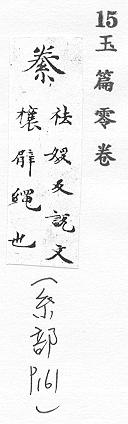 15玉篇零卷
絭
祛反說文
攘臂繩也
(糸部P161)